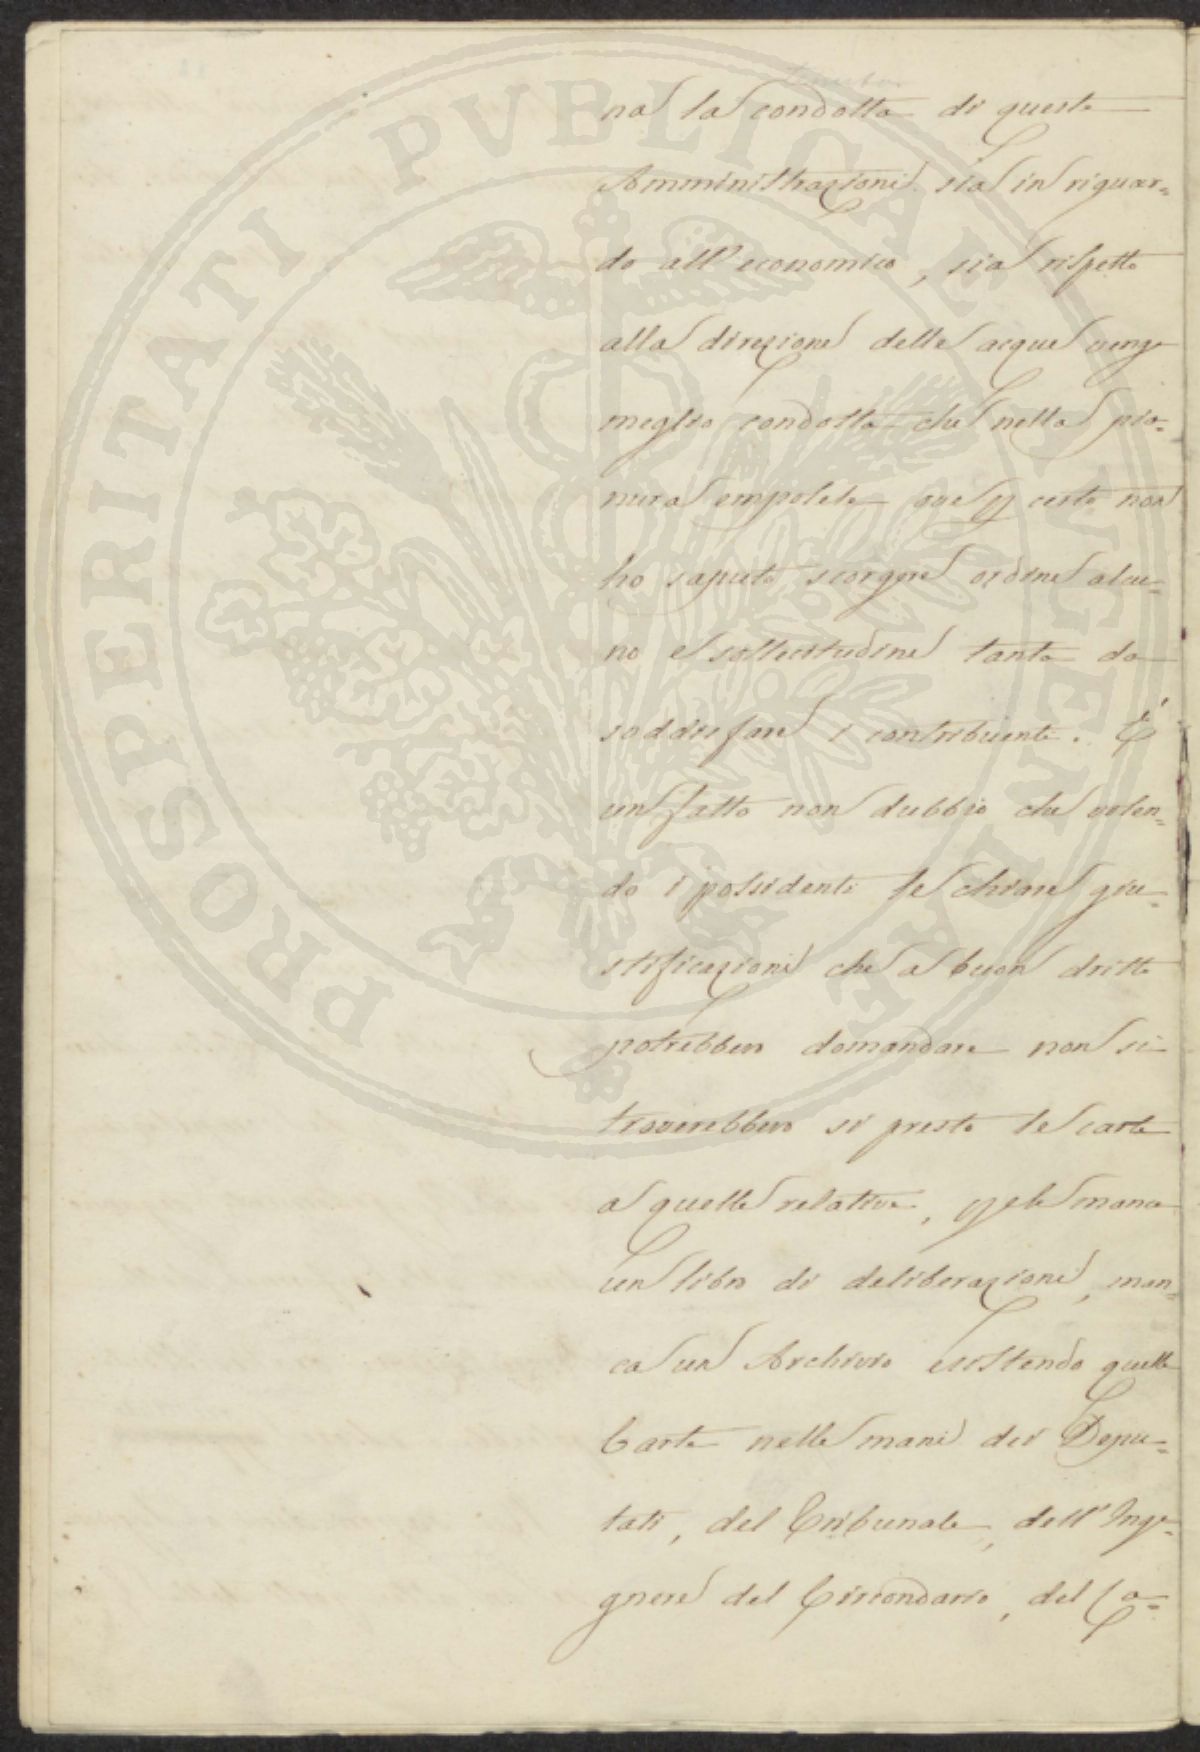 tenuta
na la condotta di queste
Amministrazioni sia in riguar=
do all'economico, sia rispetto
alla direzione delle acque venga
meglio condotta che nella pia=
nura empolese ove p certo non
ho saputo scorgere ordine alcu=
no e sollecitudine tanta da
soddisfare i contribuenti. È
un fatto non dubbio che volen=
do i possidenti le chiare giu=
stificazioni che a buon dritto
potrebbero domandare non si
troverebbero sì presto le carte
a quelle relative, manca
un libro di deliberazioni, man=
ca un Archivio esistendo quelle
Carte nelle mani dei Depu=
tati, del Tribunale, dell'Inge=
gnere del Circondario, del Ca=
PROSPERITATI PUBLICAE AUGENDAE